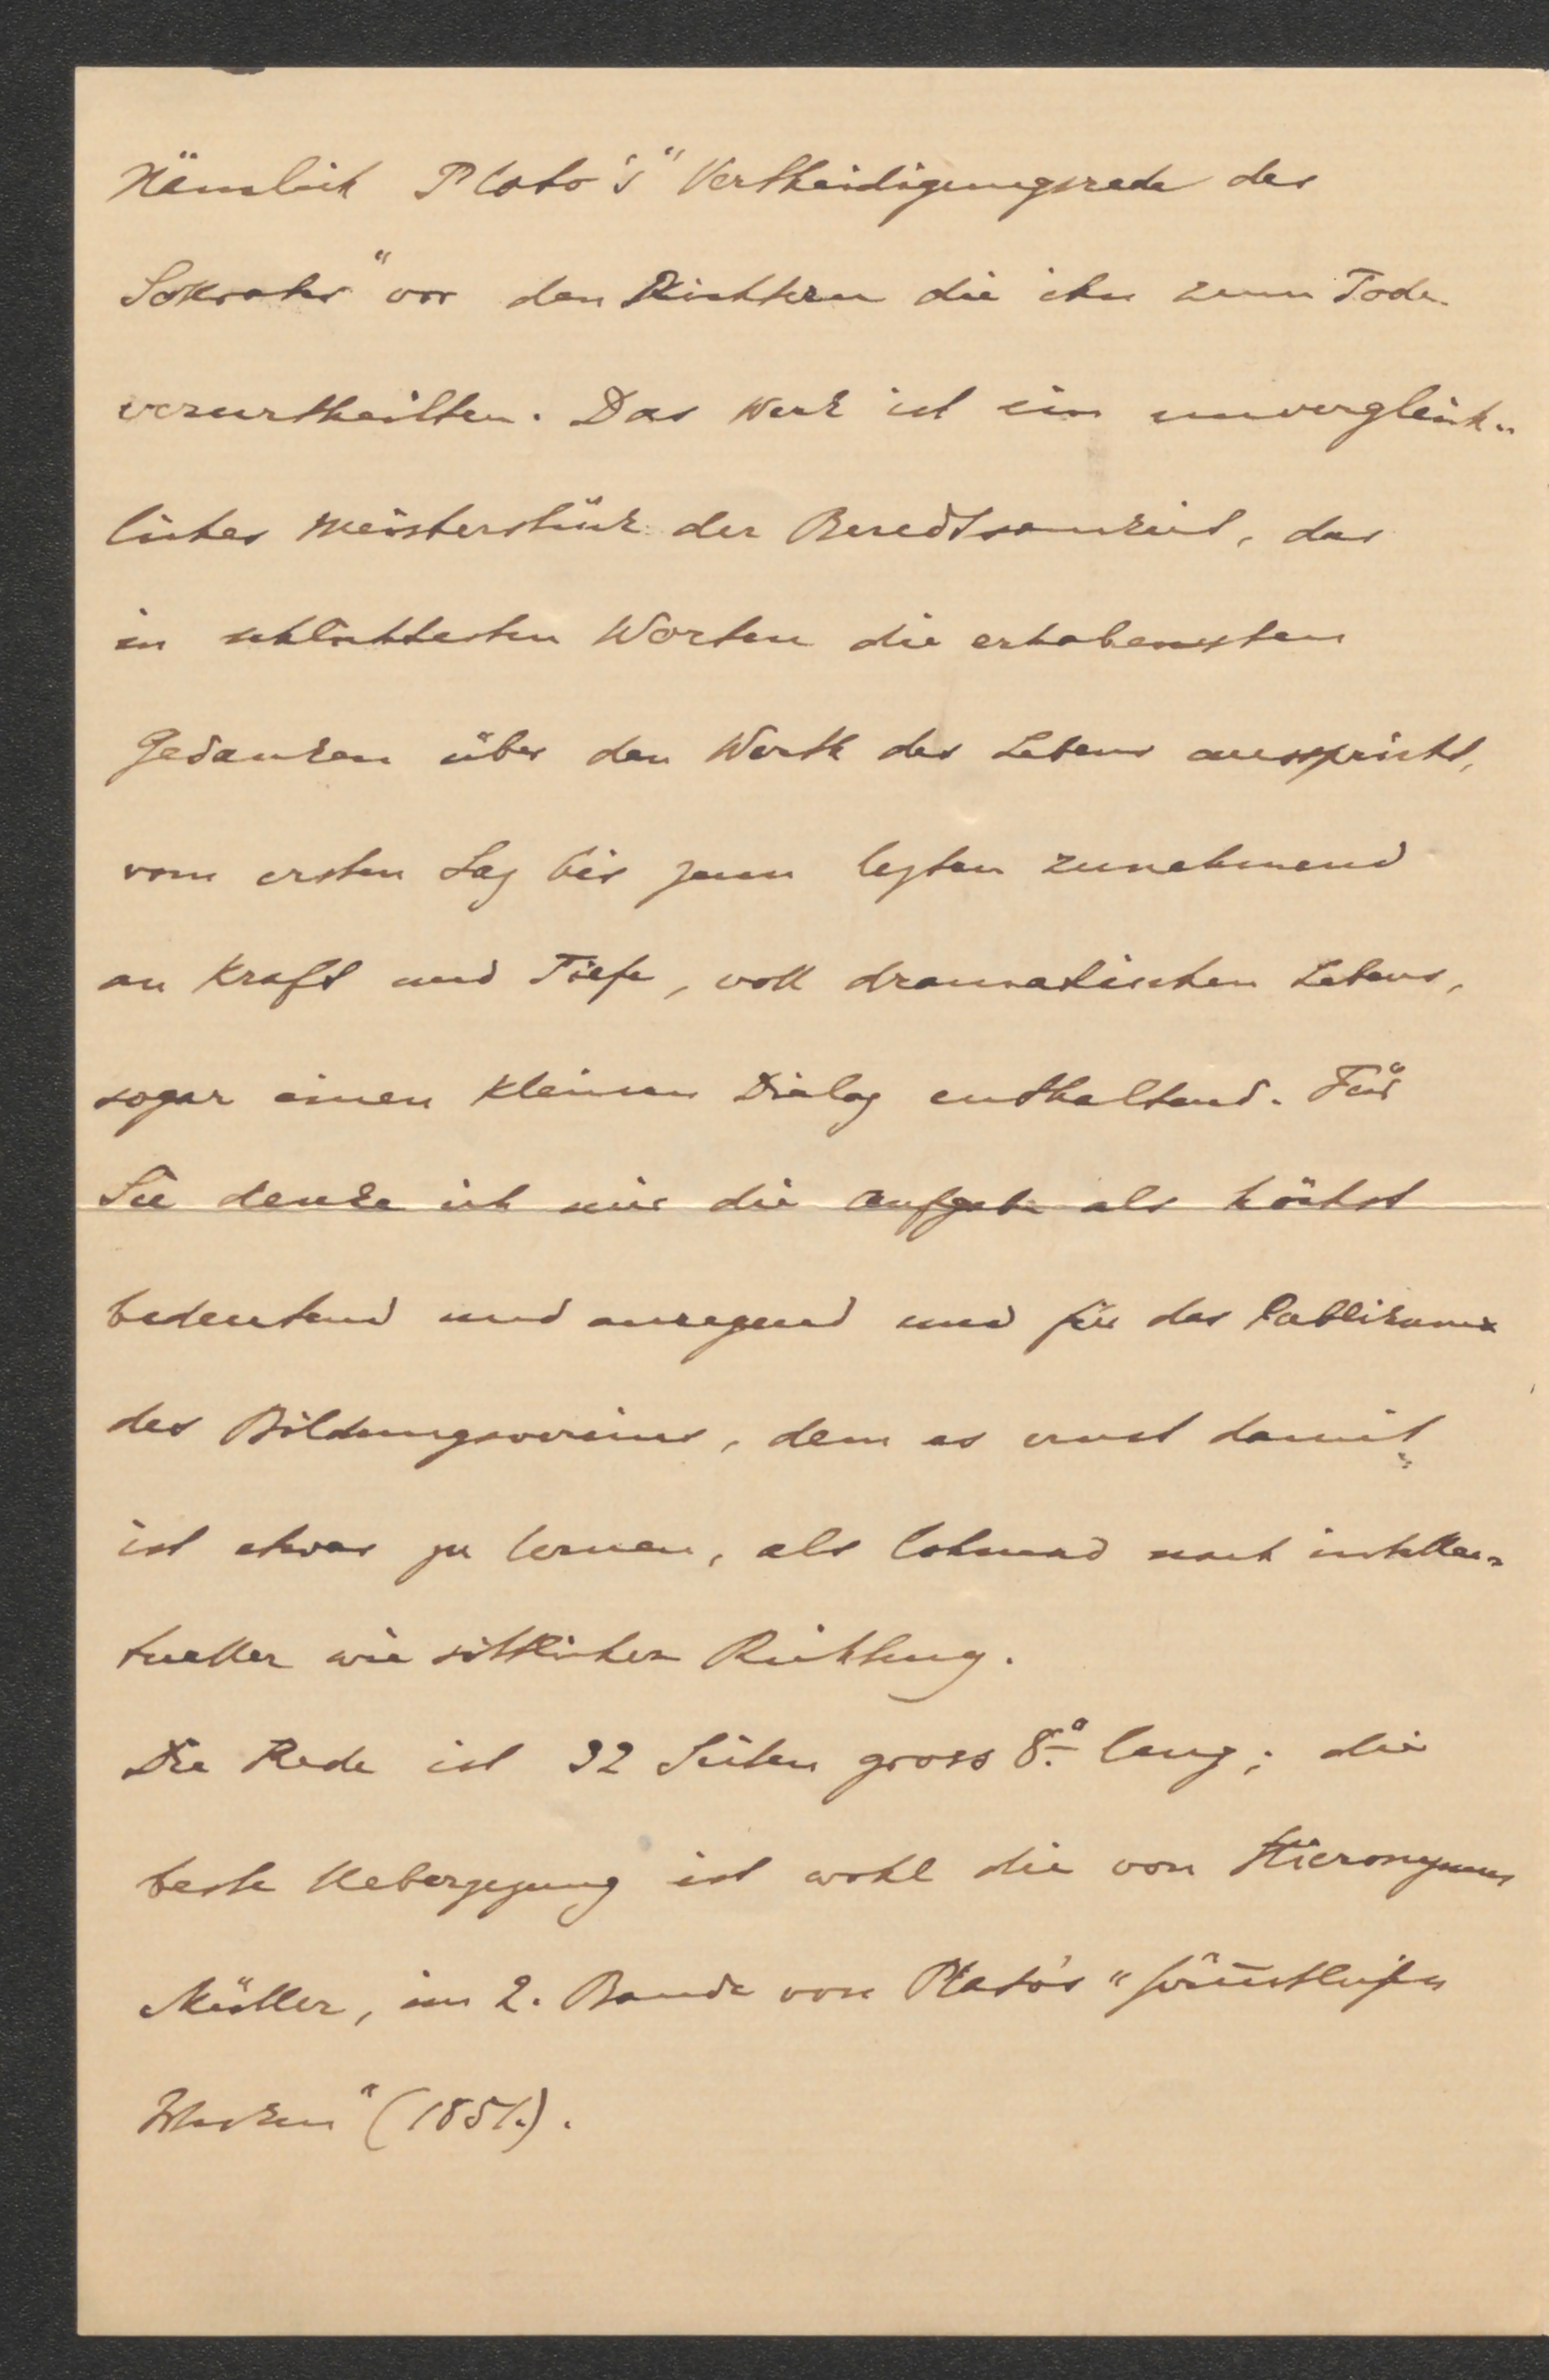 Nämlich Plato's "Vertheidigungsrede des
Sokrates" vor den Richtern die ihn zum Tode
verurtheilten. Das Werk ist ein unvergleich-
liches Meisterstück der Beredtsamkeit, das
in schlichtesten Worten die erhabensten
Gedanken über den Werth des Lebens ausspricht,
vom ersten Satz bis zum letzten zunehmend
an Kraft und Tiefe, voll dramatischen Lebens,
sogar einen kleinen Dialog enthaltend. Für
Sie denke ich mir die Aufgabe als höchst
bedeutend und anregend und für das Publikum
des Bildungsvereines, dem es ernst damit
ist etwas zu lernen, als lohnend nach intellec-
tueller wie sittlicher Richtung.
Die Rede ist 32 Seiten gross 8.° lang; die
beste Uebersetzung ist wohl die von Hieronymus
Müller, im 2. Bande von Plato's "sämtlichen
Werken" (1851.).